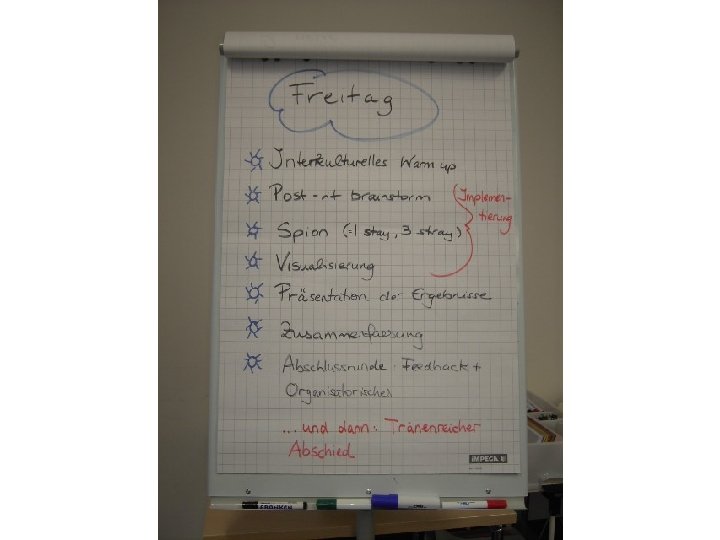 Freitag
Interkulturelles Warm up
Post-it brainstorm
(Implemen-
tierung
Spion (=1 stay, 3 stray)
Visualisierung
Präsentation der Ergebnisse
Zusammenfassung
Abschlussrunde: Feedback +
Organisatorisches
... und dann: Tränenreicher
Abschied